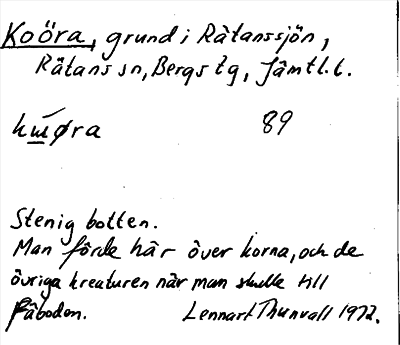 Koöra, grund i Rätanssjön,
Rätans sn, Bergs tg, Jämtl. l.
kɯ́øra 89
Stenig botten.
Man förde här över korna, och de
övriga kreaturen när man skulle till
fäboden. Lennart Thunvall 1972.